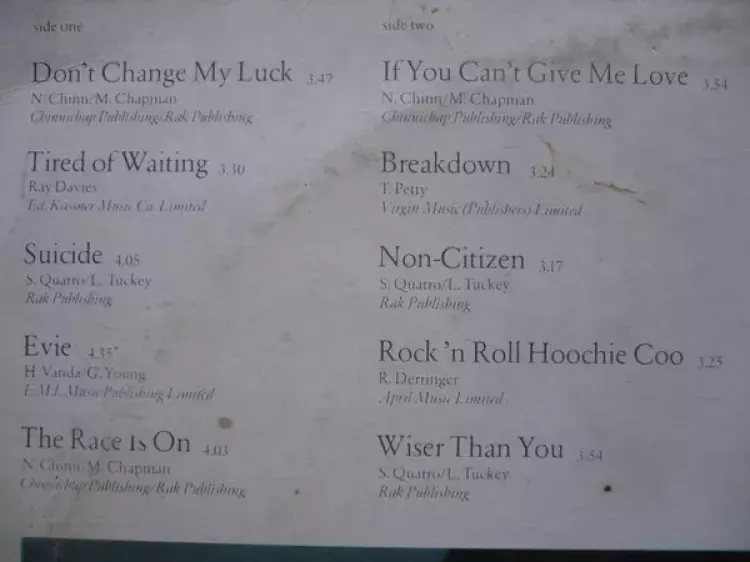 side one
Don't Change My Luck 3.47
N. Chinn/M. Chapman
Chinnichap Publishing/Rak Publishing
Tired of Waiting 3.30
Ray Davies
Ed. Kassner Music Co. Limited
Suicide 4.05
S. Quatro/L. Tuckey
Rak Publishing
Evie 4.35
H. Vanda/G. Young
E.M.I. Music Publishing Limited
The Race Is On 4.03
N. Chinn/M. Chapman
Chinnichap Publishing/Rak Publishing
side two
If You Can't Give Me Love 3.54
N. Chinn/M. Chapman
Chinnichap Publishing/Rak Publishing
Breakdown 3.24
T. Petty
Virgin Music (Publishers) Limited
Non-Citizen 3.17
S. Quatro/L. Tuckey
Rak Publishing
Rock 'n Roll Hoochie Coo 3.25
R. Derringer
April Music Limited
Wiser Than You 3.54
S. Quatro/L. Tuckey
Rak Publishing